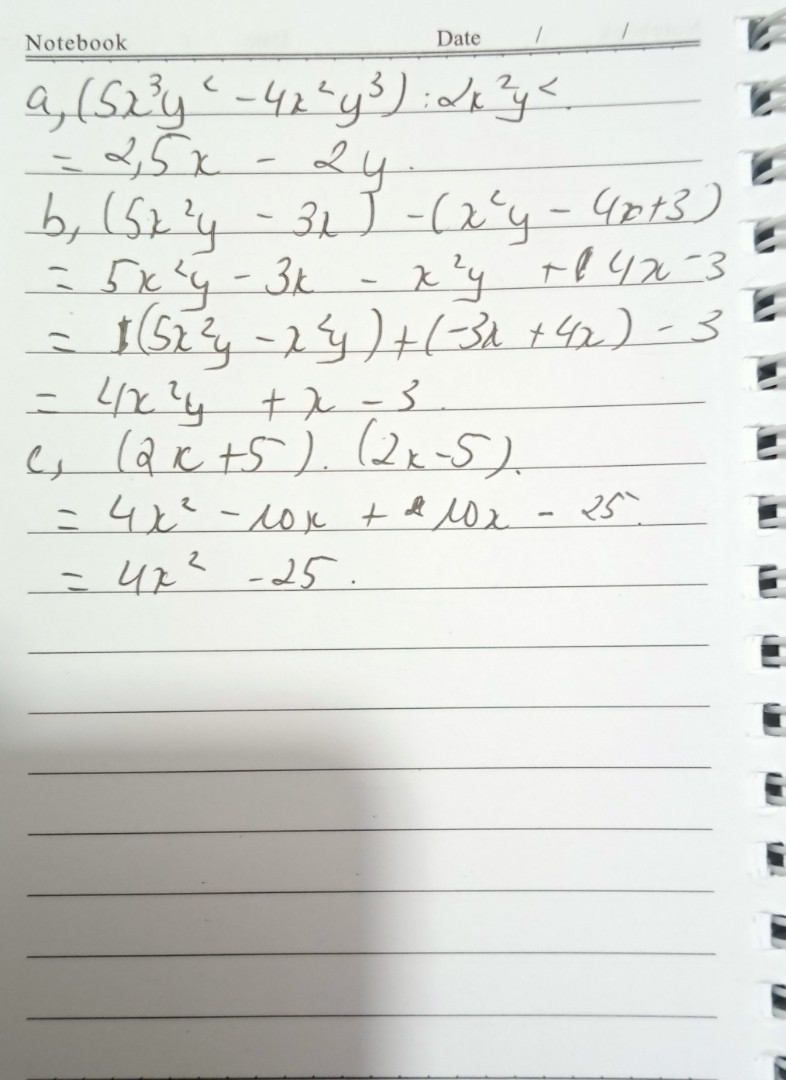 Notebook Date / /
a, (5x³y² - 4x²y³) : 2x²y².
= 2,5x - 2y.
b, (5x²y - 3x) - (x²y - 4x+3)
= 5x²y - 3x - x²y + 4x - 3
= (5x²y - x²y) + (-3x + 4x) - 3
= 4x²y + x - 3.
c, (2x+5). (2x-5).
= 4x² - 10x + 10x - 25.
= 4x² - 25.